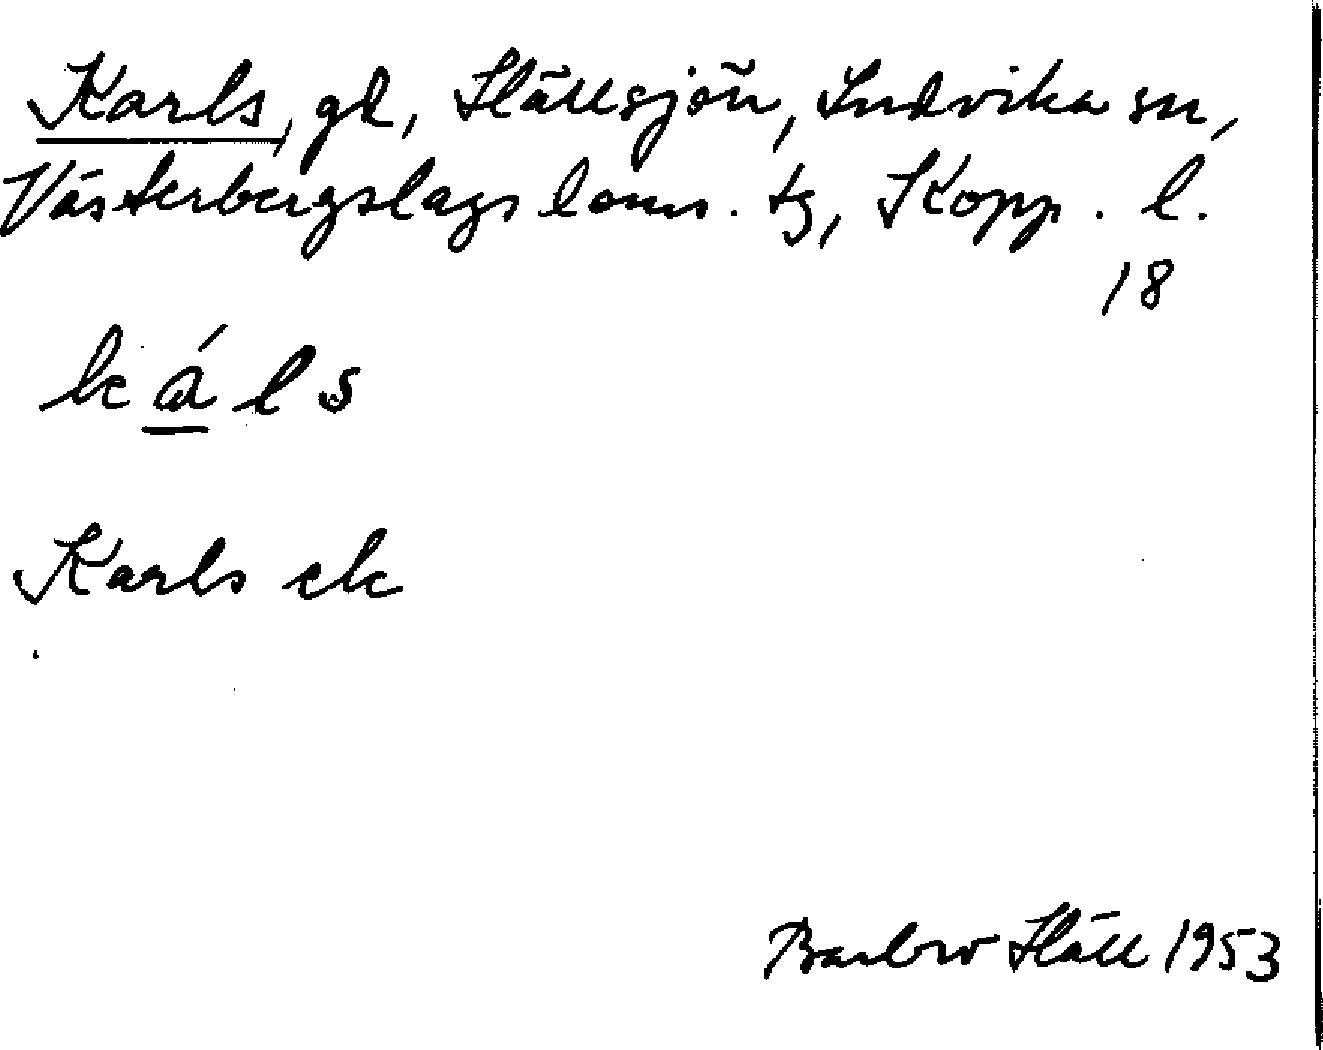 Karls, gd, Hällsjön, Ludvika sn,
Västerbergslags doms. tg, Kopp. l.
18
káls
Karls ek
Barbro Häll 1953